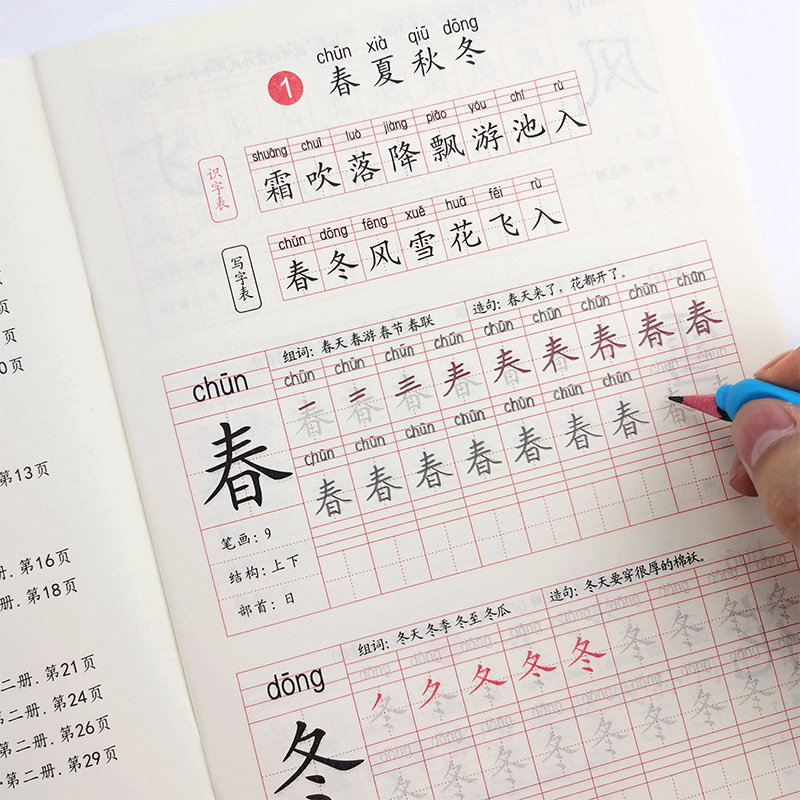 chūn xià qiū dōng
1 春夏秋冬
shuāng chuī luò jiàng piāo yóu chí rù
识字表 霜吹落降飘游池入
chūn dōng fēng xuě huā fēi rù
写字表 春冬风雪花飞入
组词：春天 春游 春节 春联 造句：春天来了，花都开了。
chūn
chūn chūn chūn chūn chūn chūn chūn chūn chūn
春
chūn chūn chūn chūn chūn chūn chūn
春 春 春 春 春 春 春 春
笔画：9
结构：上下
部首：日
组词：冬天 冬季 冬至 冬瓜 造句：冬天要穿很厚的棉袄。
dōng
冬
冬 冬 冬 冬 冬
页
页
0页
第13页
册. 第16页
册. 第18页
二册. 第21页
二册. 第24页
二册. 第26页
第二册. 第29页